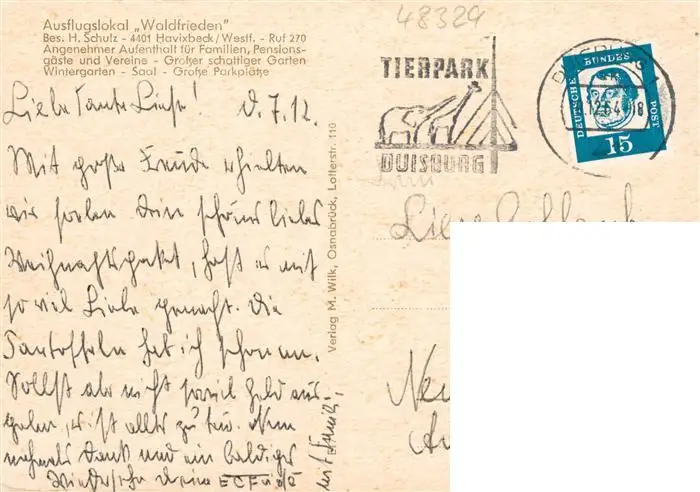 Ausflugslokal „Waldfrieden"
Bes. H. Schulz - 4401 Havixbeck/Westf. - Ruf 270
Angenehmer Aufenthalt für Familien, Pensions-
gäste und Vereine - Großer schattiger Garten
Wintergarten - Saal - Große Parkplätze
48329
TIERPARK
DUISBURG
DEUTSCHE BUNDESPOST
15
Liebe Tante Liese! D. 7.12.
Mit großer Freude erhielten
wir soeben Dein schönes liebes
Weihnachtspaket, hast es mit
so viel Liebe gemacht. Die
Pantoffeln hat ich schon an.
Sollst aber nicht soviel Geld aus-
geben, es ist alles zu teu. Nun
nochmals Dank und ein baldiges
Wiedersehn deine
Verlag M. Wilk, Osnabrück, Lotterstr. 110
Liese